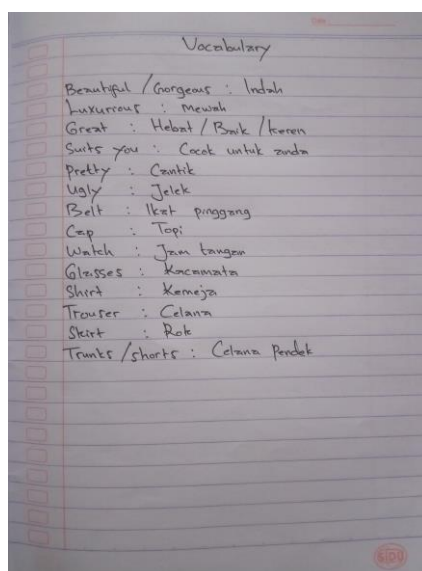 Date:
Vocabulary
Beautiful / Gorgeous : Indah
Luxurious : Mewah
Great : Hebat / Baik / Keren
Suits you : Cocok untuk anda
Pretty : Cantik
Ugly : Jelek
Belt : Ikat pinggang
Cap : Topi
Watch : Jam tangan
Glasses : Kacamata
Shirt : Kemeja
Trouser : Celana
Skirt : Rok
Trunks / shorts : Celana Pendek
SIDU